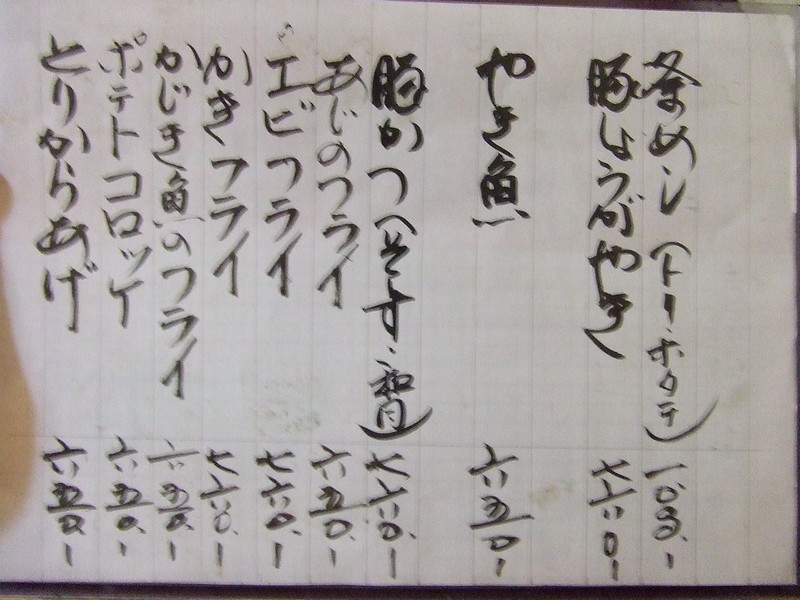 釜めし（トリ・ホタテ） 一〇〇〇.ー
豚しょうがやき 七六〇ー
やき魚 六五〇ー
豚かつ 七六〇.ー
あじのフライ 六五〇.ー
エビフライ 七六〇.ー
かきフライ 七六〇.ー
かじき魚のフライ 六五〇.ー
ポテトコロッケ 六五〇.ー
とりからあげ 六五〇.ー